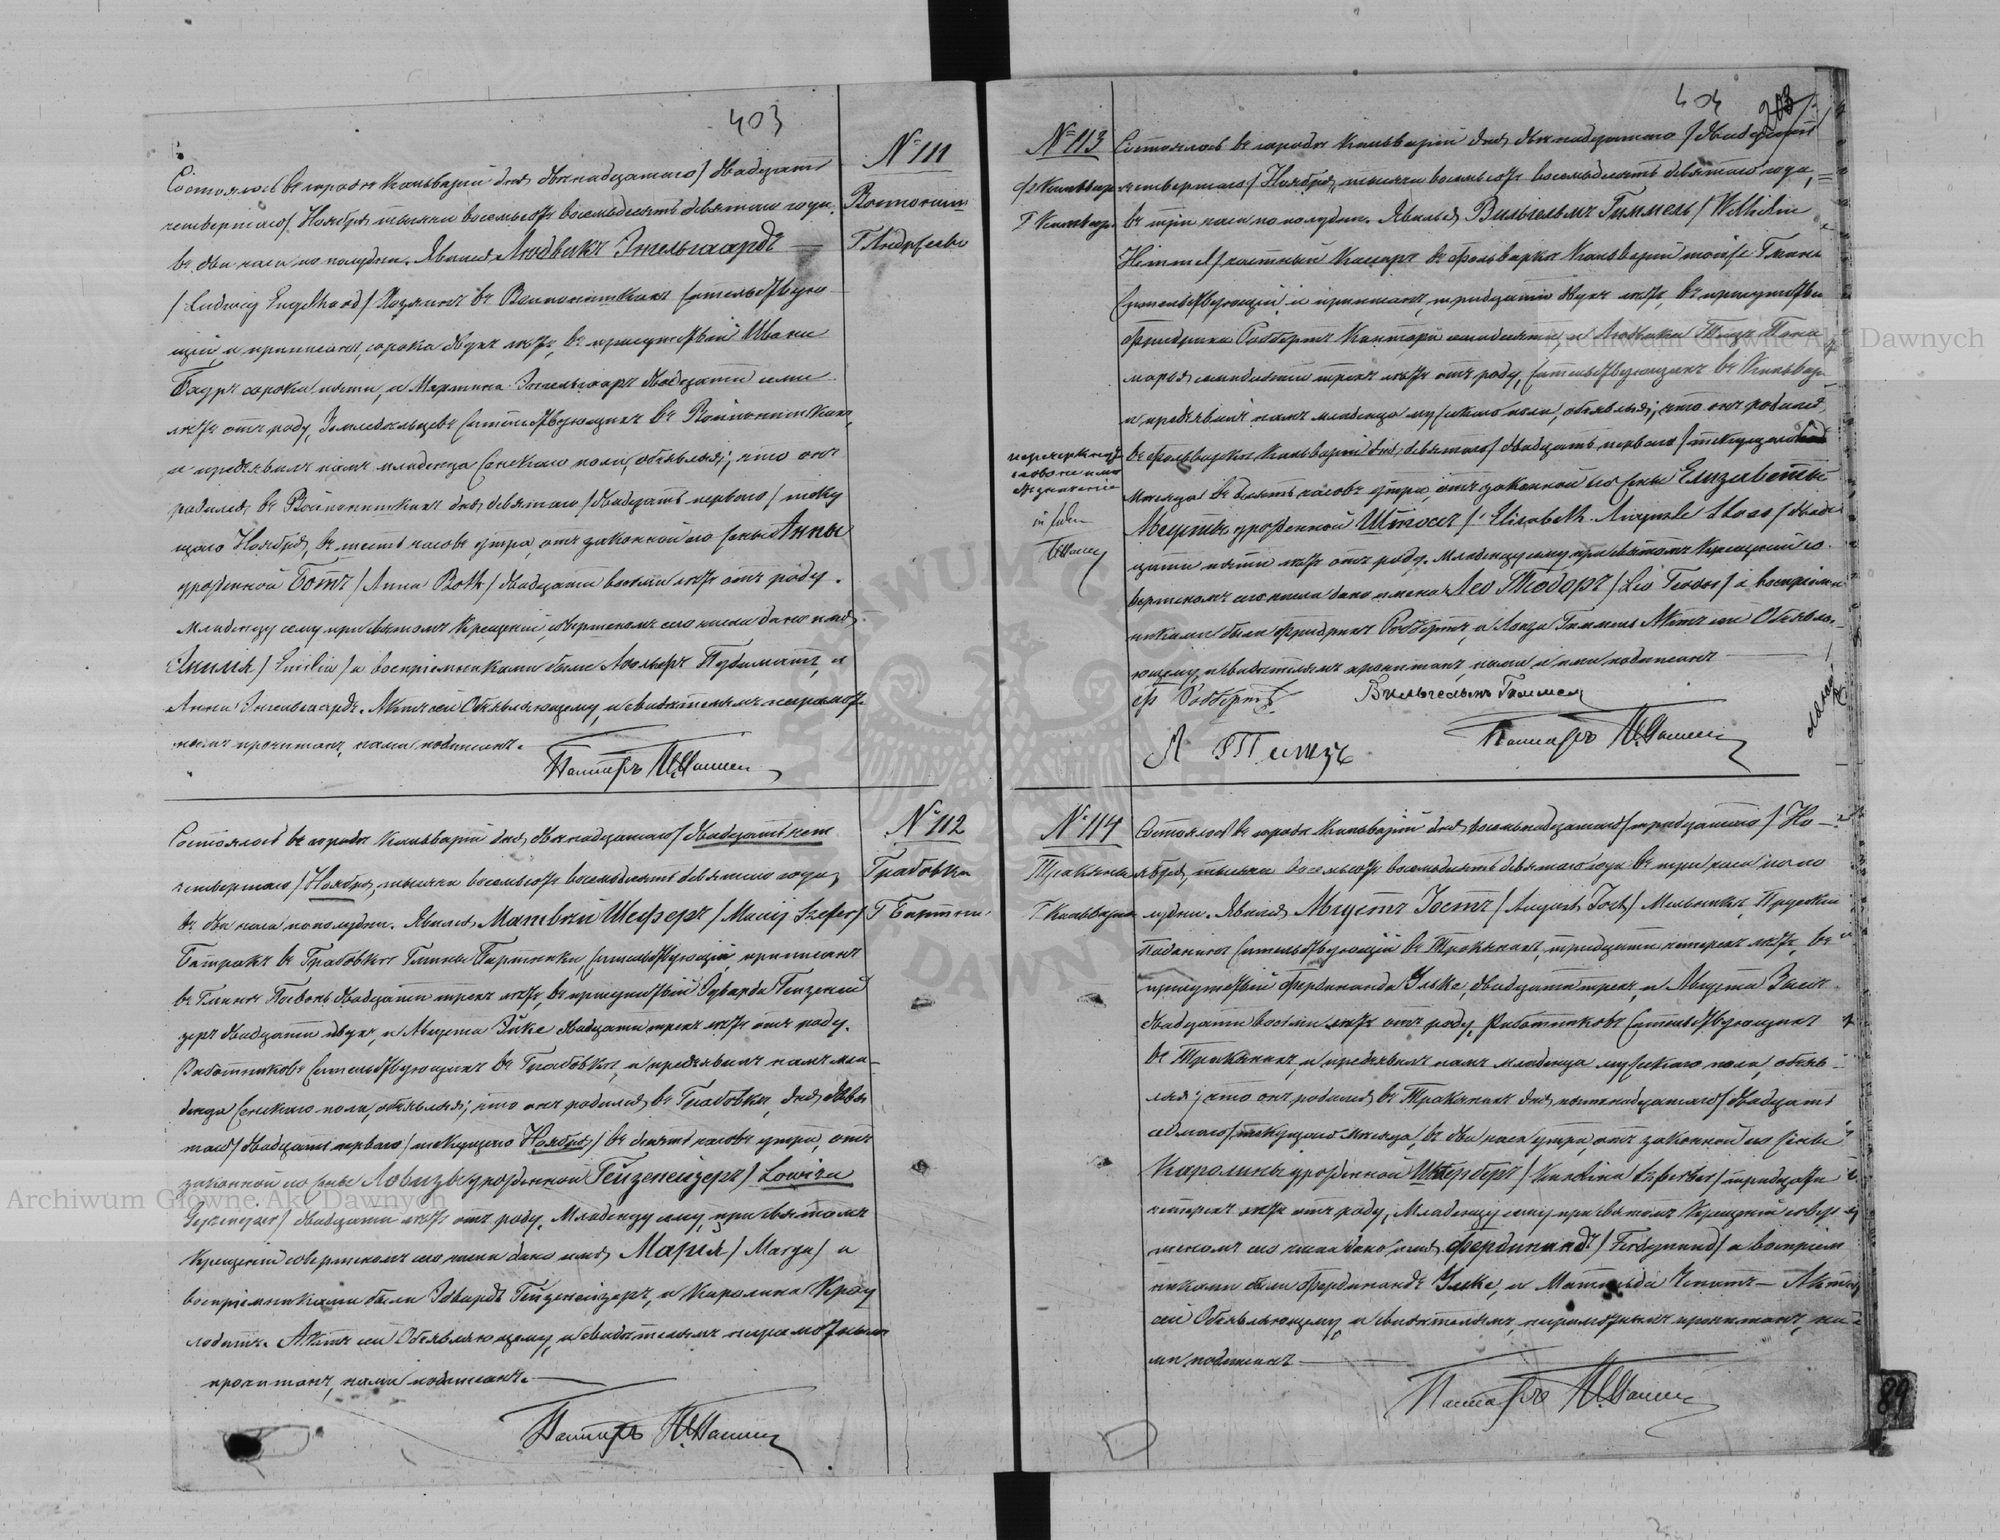 403
№ 111
Войпонишк.
Г. Андреево
Состоялось въ городѣ Кальваріи дня двѣнадцатаго / двадцать
четвертаго / Ноября тысяча восемьсотъ восемьдесятъ девятаго года,
въ два часа по полудни. Явился Людвикъ Энгельгаардъ
/ Ludwig Engelhard / Хозяинъ въ Войпонишкахъ жительствую
щій и приписанъ, сорока двухъ лѣтъ, въ присутствіи Ивана
Бауръ сорока пяти, и Мартина Энгельгааръ двадцати семи
лѣтъ отъ роду, Земледѣльцевъ жительствующихъ въ Войпонишкахъ,
и предъявилъ намъ младенца женскаго пола, объявляя, что онъ
родился въ Войпонишкахъ дня девятаго / двадцать перваго / теку
щаго Ноября, въ шесть часовъ утра, отъ законной его жены Анны
урожденной Ботъ / Anna Both / двадцати восьми лѣтъ отъ роду.
Младенцу сему при Святомъ Крещеніи, совершенномъ сего числа дано имя
Эмилія / Emilia / а воспріемниками были Адольфъ Пудиматъ, и
Анна Энгельгаардъ. Актъ сей Объявляющему, и свидѣтелямъ неграмот
нымъ прочитанъ, нами подписанъ.
Пасторъ
№ 112
Грабовка
Г. Бартни.
Состоялось въ городѣ Кальваріи дня двѣнадцатаго / двадцать чет
четвертаго / Ноября, тысяча восемьсотъ восемьдесятъ девятаго года,
въ два часа по полудни. Явился Матвѣй Шеферъ / Maciej Szefer /
Батракъ въ Грабовкѣ Гмины Бартники жительствующій, приписанъ
въ Гминѣ двадцати трехъ лѣтъ, въ присутствіи Эдварда Гейзеней
зеръ двадцати двухъ, и Августа Эйке двадцати трехъ лѣтъ отъ роду.
Работниковъ жительствующихъ въ Грабовкѣ, и предъявилъ намъ мла
денца женскаго пола, объявляя, что онъ родился въ Грабовкѣ, дня девя
таго / двадцать перваго / текущаго Ноября / въ девять часовъ утра, отъ
законной его жены Ловизы урожденной Гейзенейзеръ / Lowiza
двадцати лѣтъ отъ роду. Младенцу сему, при Святомъ
Крещеніи совершенномъ сего числа дано имя Марія / Marya / а
воспріемниками были Эдвардъ Гейзенейзеръ, и Каролина
Актъ сей Объявляющему, и свидѣтелямъ неграмотнымъ
прочитанъ, нами подписанъ.
Пасторъ
404
203
№ 113
ф. Кальвар.
Г. Кальвар.
Состоялось въ городѣ Кальваріи дня двѣнадцатаго / двадцать
четвертаго / Ноября, тысяча восемьсотъ восемьдесятъ девятаго года,
въ три часа по полудни. Явился Вильгельмъ Гиммель / Wilhelm
Himmel / въ фольваркѣ Кальваріи той же Гмины
жительствующій и приписанъ, тридцати двухъ лѣтъ, въ присутствіи
Фридриха Робертъ Кантора и Людвика Титцъ
семидесяти трехъ лѣтъ отъ роду, жительствующихъ въ Кальвар.
и предъявилъ намъ младенца мужескаго пола, объявляя, что онъ родился
въ фольваркѣ Кальваріи дня девятаго / двадцать перваго / текущаго
мѣсяца въ девять часовъ утра, отъ законной его жены Елизаветы
Августы урожденной Штосъ / Elisabeth Auguste Stoss / двад
цати пяти лѣтъ отъ роду. Младенцу сему при Святомъ Крещеніи со
вершенномъ сего числа дано имена Лео Теодоръ / Leo Teodor / а воспріем
никами были Фридрихъ Робертъ, и Луиза Гиммель Актъ сей Объявля
ющему, и свидѣтелямъ прочитанъ, нами и ими подписанъ
перечеркнуто
слово не имѣетъ
значенія
Ф Робертъ
Вильгельмъ Гиммель
Л Титцъ
Пасторъ
№ 114
Тракяны
Г. Кальвария
Состоялось въ городѣ Кальваріи дня восемьнадцатаго / тридцатаго / Но
ября, тысяча восемьсотъ восемьдесятъ девятаго года въ три часа по по
лудни. Явился Августъ Іостъ / August Jost / Мельникъ, Прусскій
Подданный жительствующій въ Тракянахъ, тридцати четырехъ лѣтъ, въ
присутствіи Фердинанда Ульке, двадцати трехъ, и Августа
двадцати восьми лѣтъ отъ роду, Работниковъ жительствующихъ
въ Тракянахъ, и предъявилъ намъ младенца мужескаго пола, объяв
ляя, что онъ родился въ Тракянахъ дня пятнадцатаго / двадцать
седьмаго / текущаго мѣсяца, въ два часа утра, отъ законной его жены
Каролины урожденной / Karolina / тридцати
четырехъ лѣтъ отъ роду, Младенцу сему при Святомъ Крещеніи совер
шенномъ сего числа дано имя Фердинандъ / Ferdynand / а воспріем
никами были Фердинандъ Ульке, и Матильда Актъ
сей Объявляющему, и свидѣтелямъ, неграмотнымъ прочитанъ, на
ми подписанъ
Пасторъ
89
Archiwum Główne Akt Dawnych
Archiwum Główne Akt Dawnych